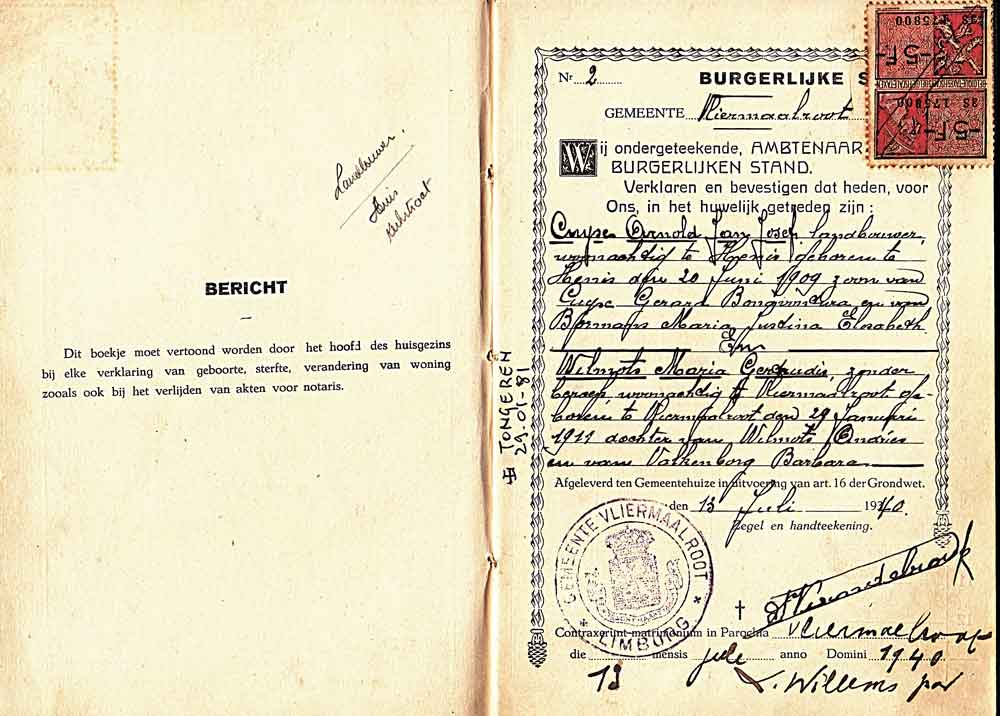 Landbouwer.
Huis
BERICHT
Dit boekje moet vertoond worden door het hoofd des huisgezins
bij elke verklaring van geboorte, sterfte, verandering van woning
zooals ook bij het verlijden van akten voor notaris.
TONGEREN
29-01-81
Nr 2
BURGERLIJKE S
GEMEENTE Vliermaalroot
Wij ondergeteekende, AMBTENAAR
BURGERLIJKEN STAND.
Verklaren en bevestigen dat heden, voor
Ons, in het huwelijk getreden zijn :
Cuype Arnold Jan Josef landbouwer,
woonachtig te Henis geboren te
Henis den 20 Juni 1909 zoon van
Cuype Gerard Bonaventura en van
Maria Justina Elisabeth
En
Wilmots Maria Gertrudis, zonder
beroep, woonachtig te Vliermaalroot ge-
boren te Vliermaalroot den 29 Januari
1911 dochter van Wilmots Andries
en van Valkenborg Barbara
Afgeleverd ten Gemeentehuize in uitvoering van art. 16 der Grondwet.
den 13 Juli 1940.
Zegel en handteekening.
GEMEENTE VLIERMAALROOT
LIMBURG
Contraxerunt matrimonium in Parochia Vliermaelroot
die 13 mensis Juli anno Domini 1940
J. Willems par
-5F-
3S 175800
-5F-
3S 175800